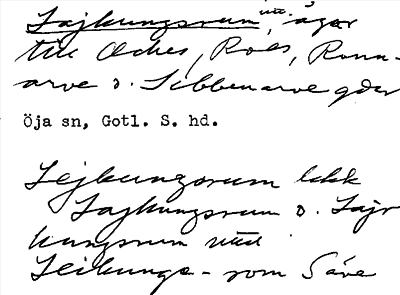 Lajkungsrum, utt. ägor
till Oches, Roes, Ronn-
arve o. Sibbenarve gdar
Öja sn, Gotl. S. hd.
Lejkungorum
Lajkungsrum o. Lajr
kungsrum utt
Leikungs- rom Säve